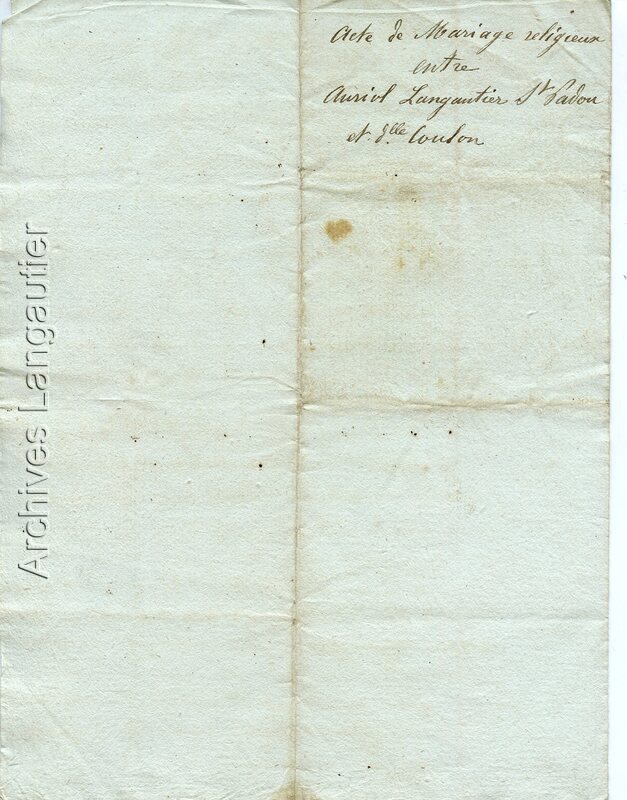 Acte de Mariage religieux
entre
Auriol Langautier St Padou
et dlle Coulon
Archives Langautier